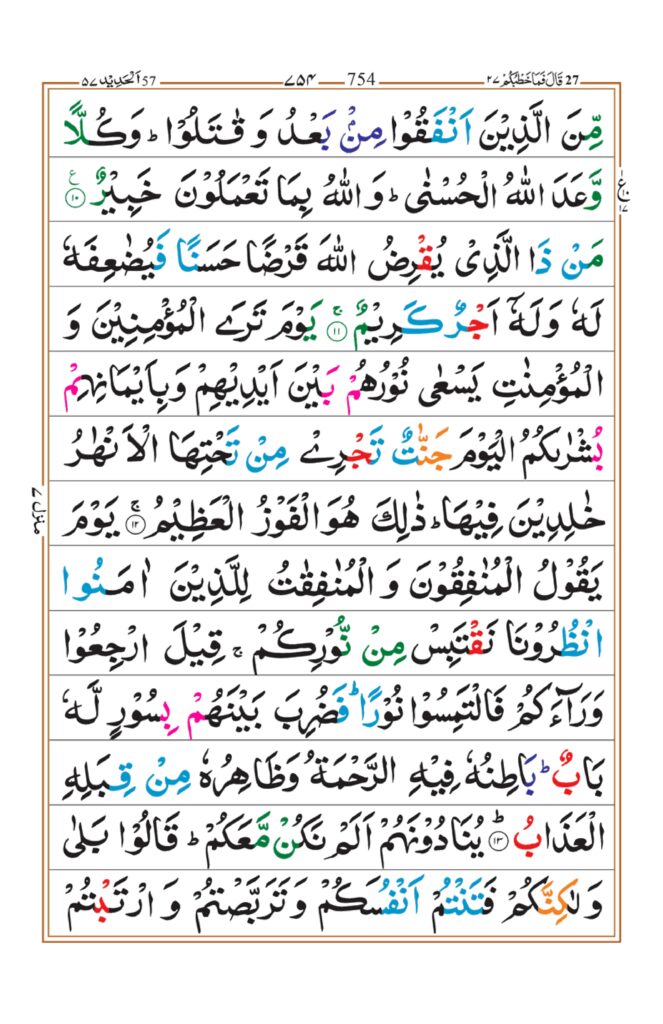 27 قَالَ فَمَا خَطْبُكُمْ ۲۷
754 ۷۵۴
57 اَلْحَدِيْد ۵۷
مِّنَ الَّذِيْنَ اَنْفَقُوْا مِنْۢ بَعْدُ وَ قٰتَلُوْا ؕ وَكُلًّا
وَّعَدَ اللّٰهُ الْحُسْنٰى ؕ وَ اللّٰهُ بِمَا تَعْمَلُوْنَ خَبِيْرٌ ۱۰ ع
مَنْ ذَا الَّذِىْ يُقْرِضُ اللّٰهَ قَرْضًا حَسَنًا فَيُضٰعِفَهٗ
لَهٗ وَلَهٗۤ اَجْرٌ كَرِيْمٌ ۱۱ ۚ يَوْمَ تَرَى الْمُؤْمِنِيْنَ وَ
الْمُؤْمِنٰتِ يَسْعٰى نُوْرُهُمْ بَيْنَ اَيْدِيْهِمْ وَبِاَيْمَانِهِمْ
بُشْرٰىكُمُ الْيَوْمَ جَنّٰتٌ تَجْرِىْ مِنْ تَحْتِهَا الْاَنْهٰرُ
خٰلِدِيْنَ فِيْهَا ؕ ذٰلِكَ هُوَ الْفَوْزُ الْعَظِيْمُ ۱۲ ۚ يَوْمَ
يَقُوْلُ الْمُنٰفِقُوْنَ وَ الْمُنٰفِقٰتُ لِلَّذِيْنَ اٰمَنُوا
انْظُرُوْنَا نَقْتَبِسْ مِنْ نُّوْرِكُمْ ۚ قِيْلَ ارْجِعُوْا
وَرَآءَكُمْ فَالْتَمِسُوْا نُوْرًا ؕ فَضُرِبَ بَيْنَهُمْ بِسُوْرٍ لَّهٗ
بَابٌ ؕ بَاطِنُهٗ فِيْهِ الرَّحْمَةُ وَظَاهِرُهٗ مِنْ قِبَلِهِ
الْعَذَابُ ؕ ۱۳ يُنَادُوْنَهُمْ اَلَمْ نَكُنْ مَّعَكُمْ ؕ قَالُوْا بَلٰى
وَ لٰكِنَّكُمْ فَتَنْتُمْ اَنْفُسَكُمْ وَ تَرَبَّصْتُمْ وَ ارْتَبْتُمْ
منزل ۷